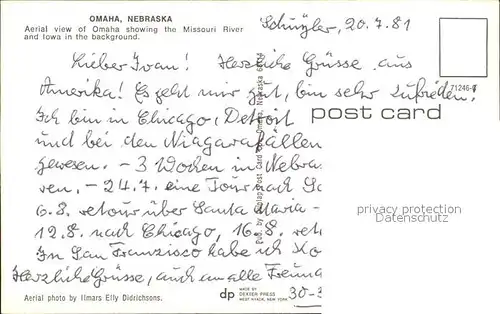 OMAHA, NEBRASKA
Aerial view of Omaha showing the Missouri River
and Iowa in the background.
Schuyler, 20.7.81
Lieber Ivan! Herzliche Grüsse aus
Amerika! Es geht mir gut, bin sehr zufrieden.
71246-
post card
Ich bin in Chicago, Detroit
und bei den Niagarafällen
gewesen. - 3 Wochen in Nebra
ren. - 24.7. eine Tour nach
6.8. retour über Santa Maria -
12.8. nach Chicago, 16.8. reto
In San Franzisco habe ich
Herzliche Grüsse, auch an alle Freun
privacy protection
Datenschutz
Aerial photo by Ilmars Elly Didrichsons.
dp
MADE BY
DEXTER PRESS
WEST NYACK, NEW YORK
30-
Pub. by Dunlap Post Card Co., Omaha, Nebraska